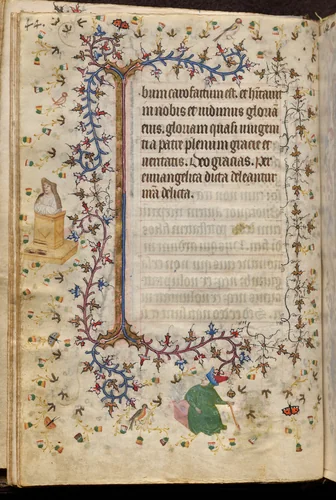 bum caro factum est. et habitavit
in nobis et vidimus gloriam
eius. gloriam quasi unigeni
ti a patre plenum gracie et
veritatis. Deo gracias. Per
euuangelica dicta deleantur
nra delicta.